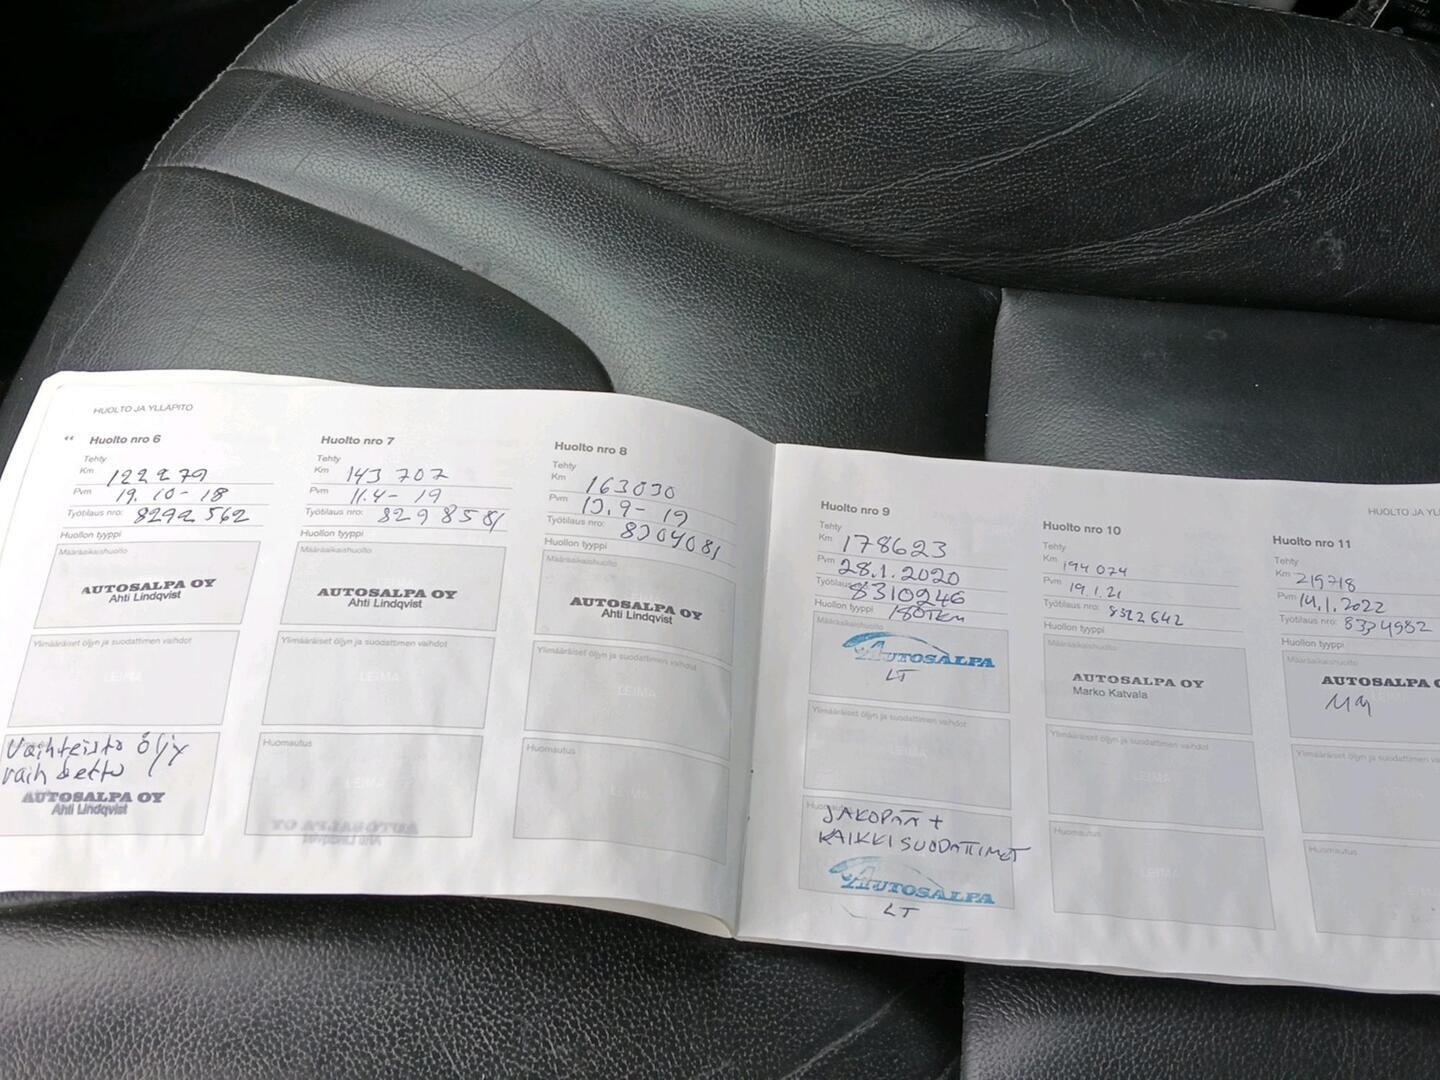 HUOLTO JA YLLÄPITO
Huolto nro 6
Tehty
Km 122279
Pvm 19.10-18
Työtilaus nro: 8292562
Huollon tyyppi
Määräaikaishuolto
AUTOSALPA OY
Ahti Lindqvist
Ylimääräiset öljyn ja suodattimen vaihdot
LEIMA
Vaihteisto öljy
vaihdettu
AUTOSALPA OY
Ahti Lindqvist
Huolto nro 7
Tehty
Km 143 707
Pvm 11.4-19
Työtilaus nro: 8298581
Huollon tyyppi
Määräaikaishuolto
AUTOSALPA OY
Ahti Lindqvist
Ylimääräiset öljyn ja suodattimen vaihdot
LEIMA
Huomautus
LEIMA
Huolto nro 8
Tehty
Km 163030
Pvm 13.9-19
Työtilaus nro: 8304081
Huollon tyyppi
Määräaikaishuolto
AUTOSALPA OY
Ahti Lindqvist
Ylimääräiset öljyn ja suodattimen vaihdot
LEIMA
Huomautus
LEIMA
Huolto nro 9
Tehty
Km 178623
Pvm 28.1.2020
8310246
Huollon tyyppi 180TKM
Määräaikaishuolto
AUTOSALPA
LT
Ylimääräiset öljyn ja suodattimen vaihdot
LEIMA
JAKOPÄÄ +
KAIKKI SUODATTIMET
AUTOSALPA
LT
Huolto nro 10
Tehty
Km 194 074
Pvm 19.1.21
Työtilaus nro: 8322642
Huollon tyyppi
Määräaikaishuolto
AUTOSALPA OY
Marko Katvala
Ylimääräiset öljyn ja suodattimen vaihdot
LEIMA
Huomautus
LEIMA
HUOLTO JA YL
Huolto nro 11
Tehty
Km 219718
Pvm 14.1.2022
Työtilaus nro: 8334982
Huollon tyyppi
Määräaikaishuolto
AUTOSALPA
Ylimääräiset öljyn ja suodattimen
LEIMA
Huomautus
LEIMA